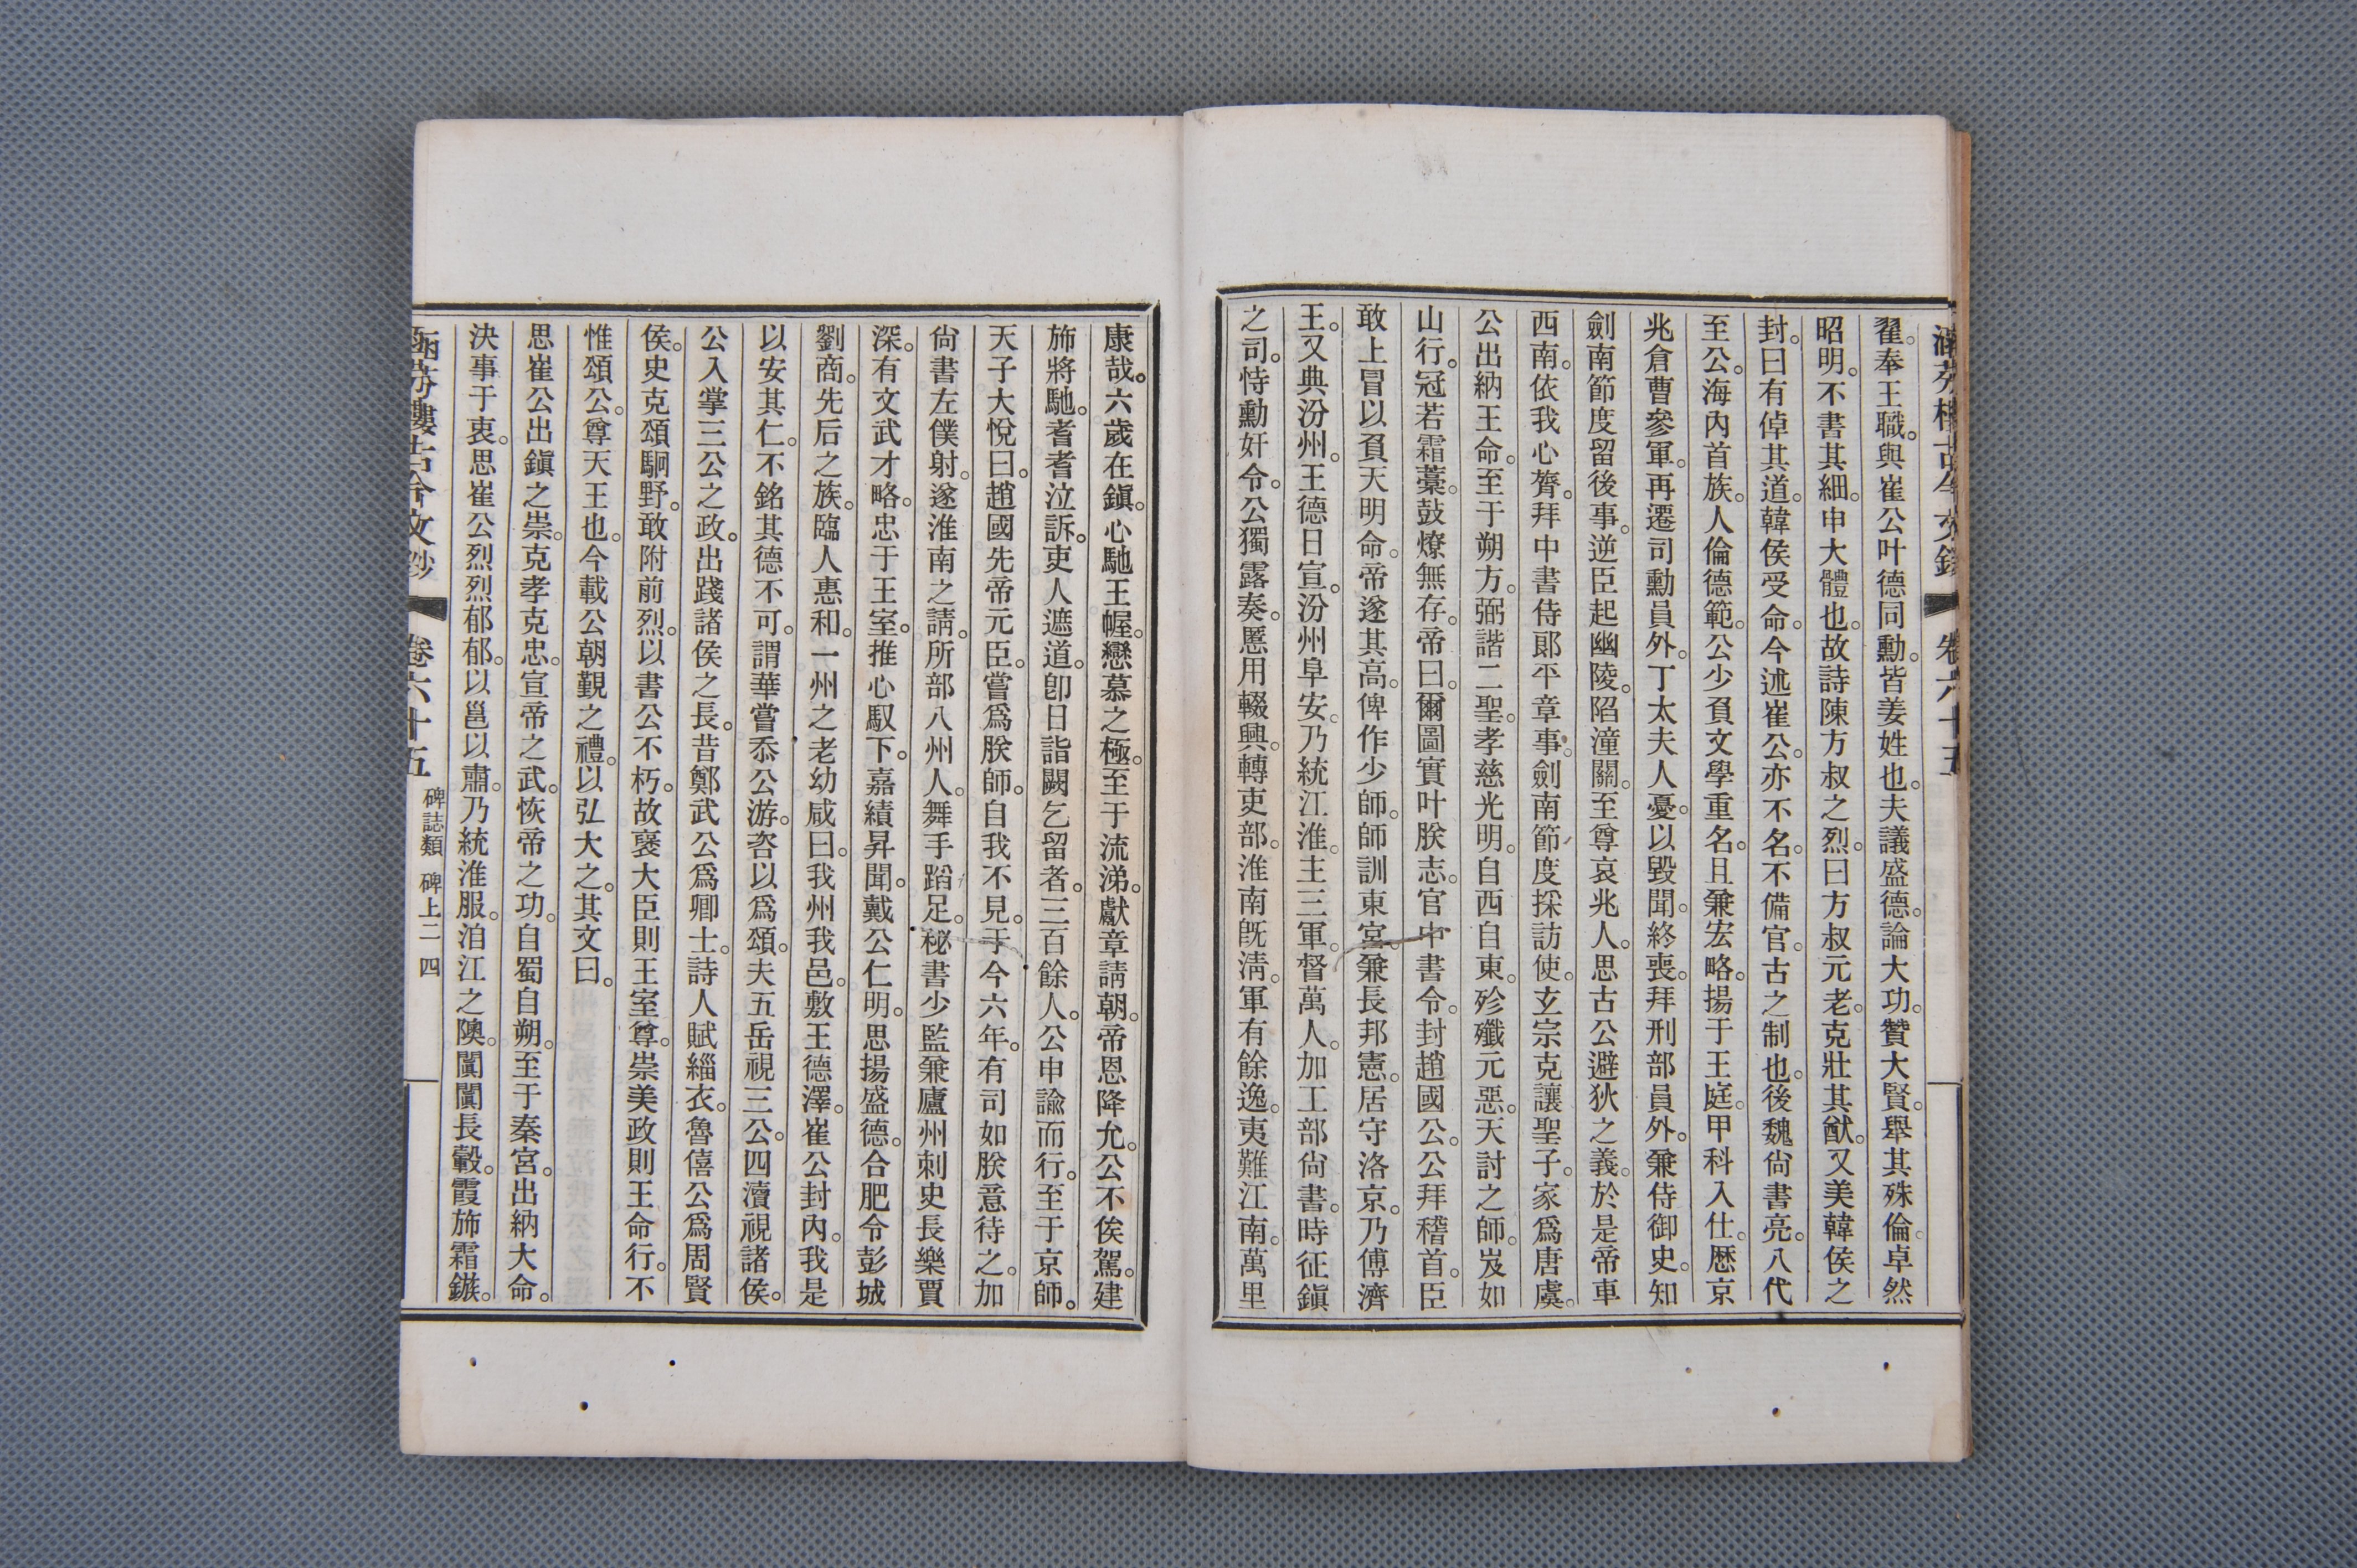 涵芬樓古今文鈔 卷六十五
翟。奉王職。與崔公叶德同勳。皆姜姓也。夫議盛德。論大功。贊大賢。舉其殊倫。卓然
昭明。不書其細。申大體也。故詩陳方叔之烈。曰方叔元老。克壯其猷。又美韓侯之
封。曰有倬其道。韓侯受命。今述崔公。亦不名。不備官。古之制也。後魏尙書亮。八代
至公。海內首族。人倫德範。公少負文學重名。且兼宏略。揚于王庭。甲科入仕。歷京
兆倉曹參軍。再遷司勳員外。丁太夫人憂。以毀聞。終喪。拜刑部員外。兼侍御史。知
劍南節度留後事。逆臣起幽陵。陷潼關。至尊哀兆人。思古公避狄之義。於是帝車
西南。依我心膂。拜中書侍郞平章事。劍南節度採訪使。玄宗克讓聖子。家爲唐虞。
公出納王命。至于朔方。弼諧二聖。孝慈光明。自西自東。殄殲元惡。天討之師。岌如
山行。冠若霜蘽。鼓燎無存。帝曰。爾圖實叶朕志。官中書令。封趙國公。公拜稽首。臣
敢上冒以負天明命。帝遂其高。俾作少師。師訓東宮。兼長邦憲。居守洛京。乃傅濟
王。又典汾州。王德日宣。汾州阜安。乃統江淮。主三軍。督萬人。加工部尙書。時征鎭
之司。恃勳奸令。公獨露奏。慝用輟興。轉吏部。淮南旣淸。軍有餘逸。夷難江南。萬里
康哉。六歲在鎭。心馳王幄。戀慕之極。至于流涕。獻章請朝。帝恩降允。公不俟駕。建
斾將馳。耆耆泣訴。吏人遮道。卽日詣闕乞留者。三百餘人。公申諭而行。至于京師。
天子大悅曰。趙國先帝元臣。嘗爲朕師。自我不見。于今六年。有司如朕意待之。加
尙書左僕射。遂淮南之請。所部八州人。舞手蹈足。秘書少監兼廬州刺史長樂賈
深。有文武才略。忠于王室。推心馭下。嘉績昇聞。戴公仁明。思揚盛德。合肥令彭城
劉商。先后之族。臨人惠和。一州之老幼咸曰。我州我邑。敷王德澤。崔公封內。我是
以安其仁。不銘其德不可。謂華嘗忝公游。咨以爲頌。夫五岳視三公。四瀆視諸侯。
公入掌三公之政。出踐諸侯之長。昔鄭武公爲卿士。詩人賦緇衣。魯僖公爲周賢
侯。史克頌駉野。敢附前烈。以書公不朽。故襃大臣則王室尊。崇美政則王命行。不
惟頌公。尊天王也。今載公朝覲之禮。以弘大之。其文曰。
思崔公出鎭之崇。克孝克忠。宣帝之武。恢帝之功。自蜀自朔。至于秦宮。出納大命。
決事于衷。思崔公烈烈郁郁。以邕以肅。乃統淮服。洎江之隩。闐闐長轂。霞斾霜鏃。
涵芬樓古今文鈔 卷六十五 碑誌類 碑上二 四